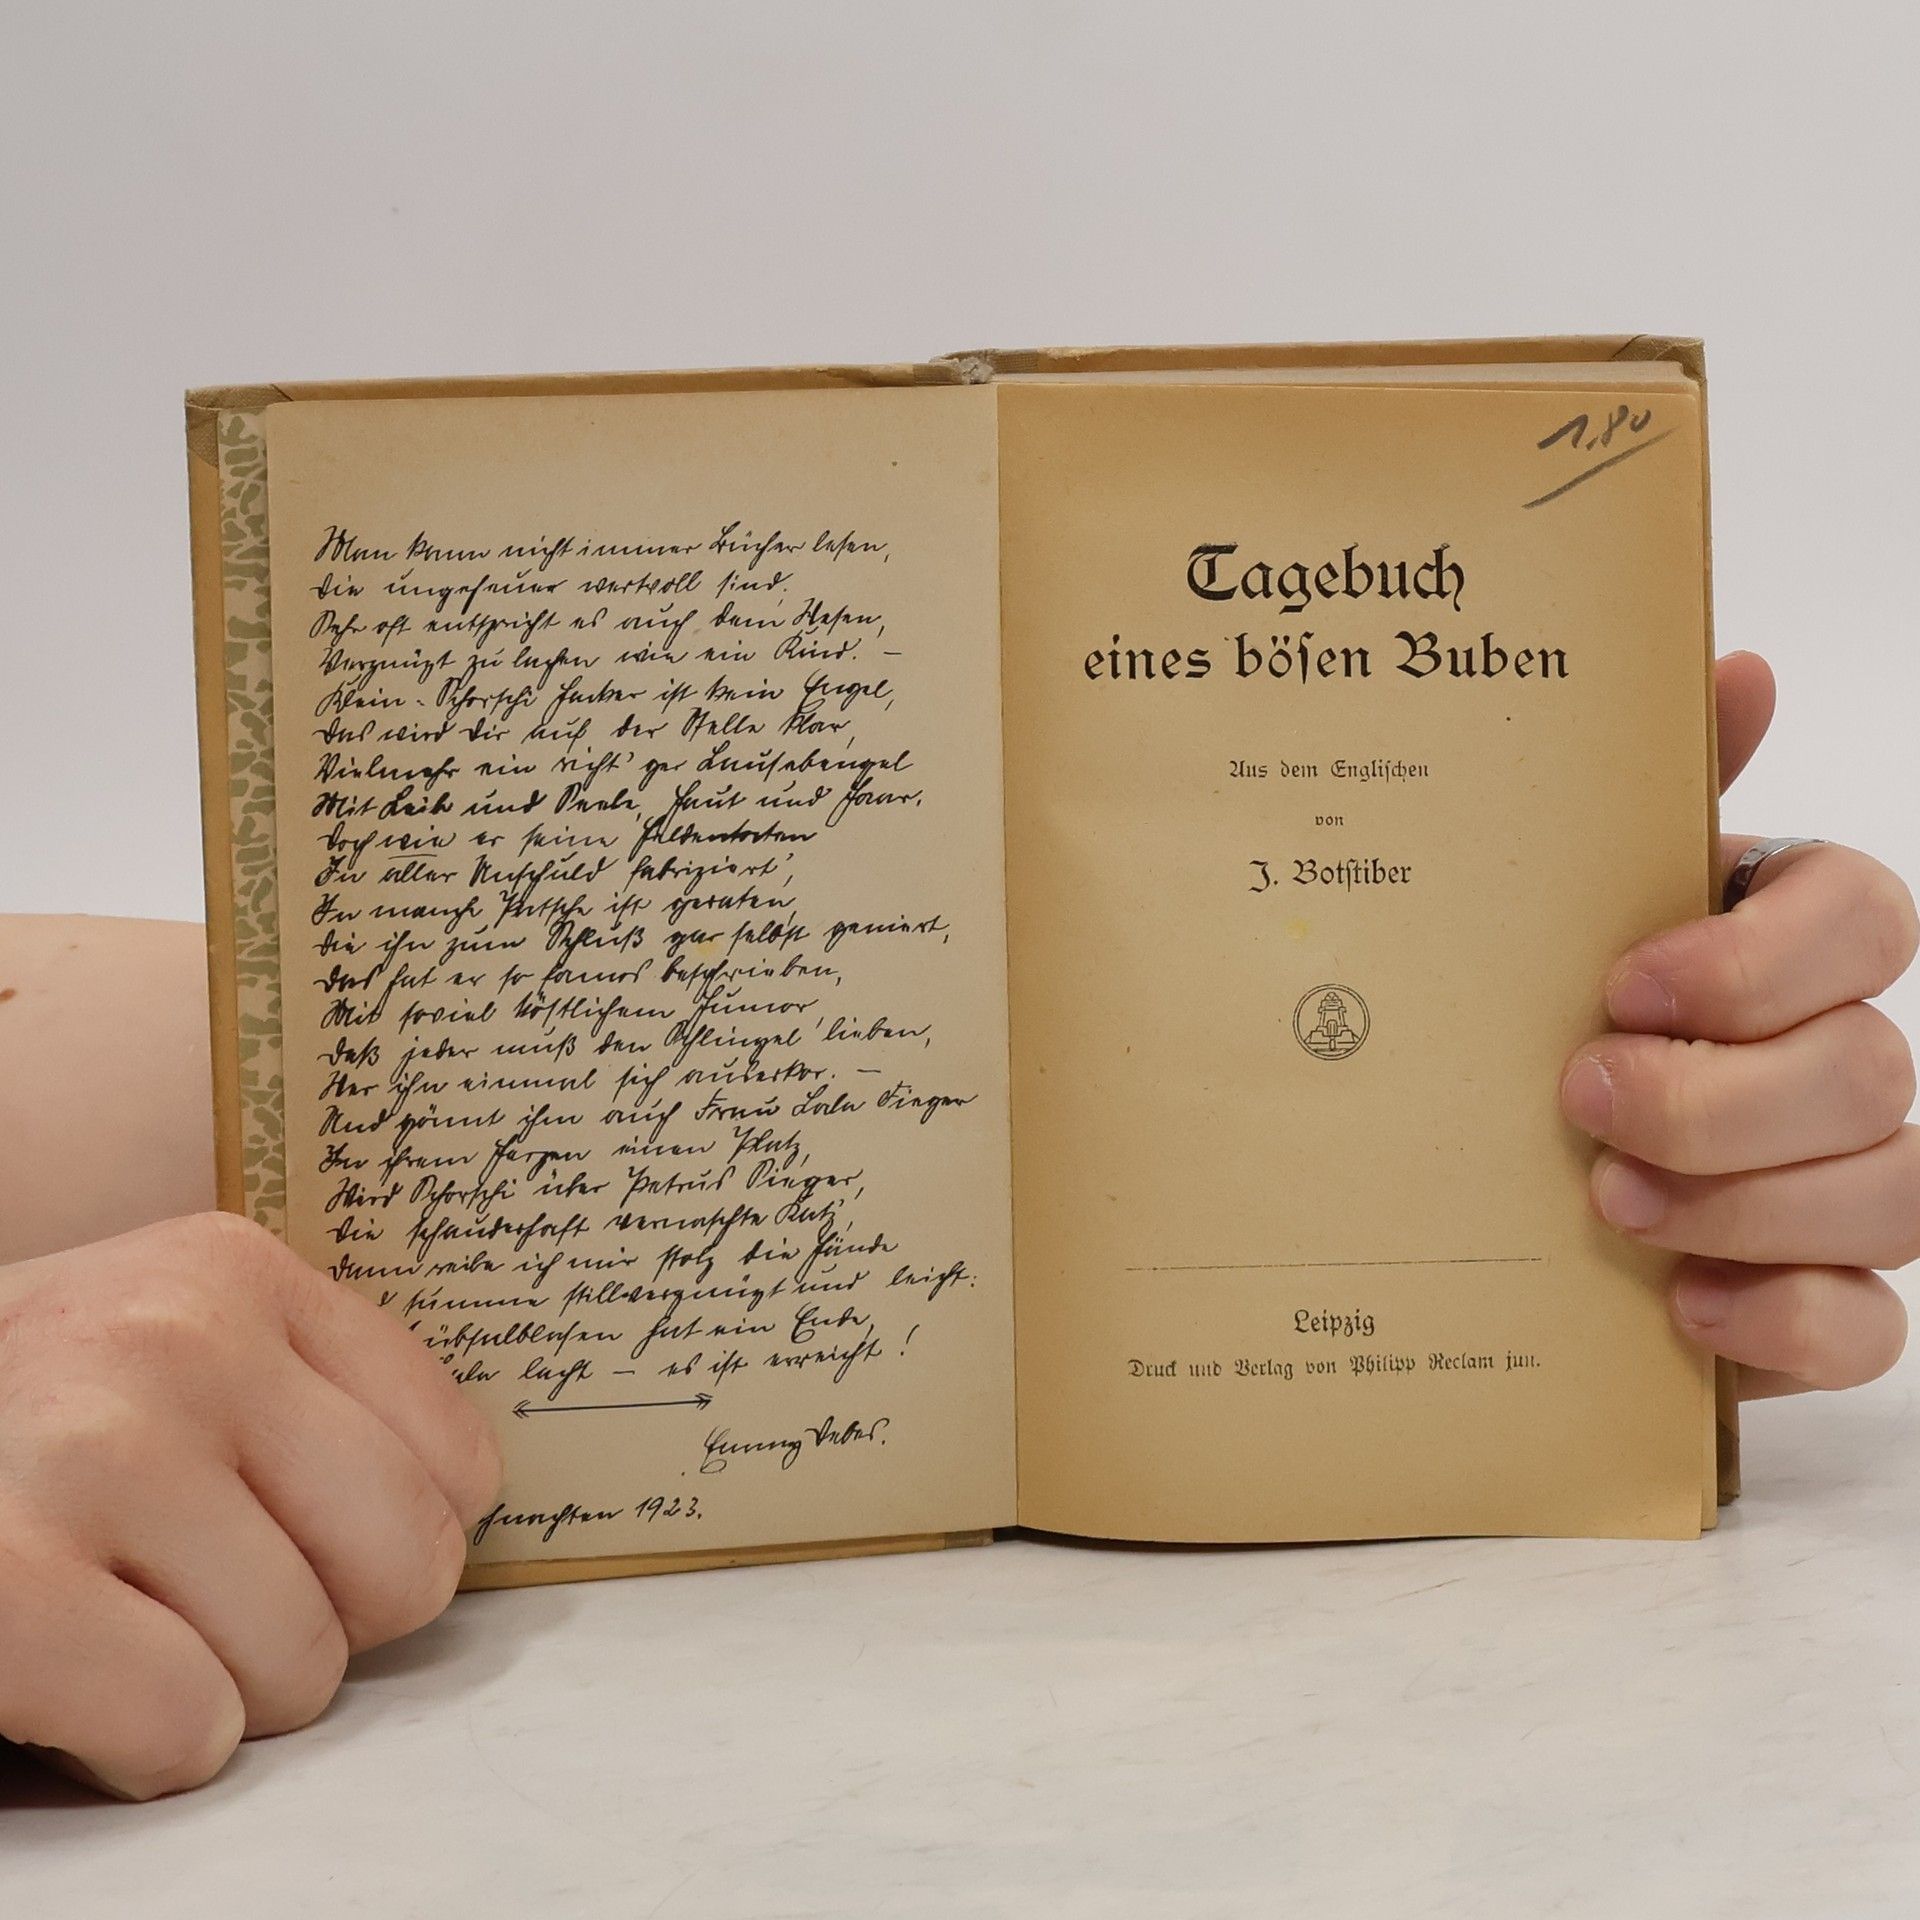 Man kann nicht immer Bücher lesen,
Die ungeheuer wertvoll sind.
Sehr oft entspricht es auch dem Wesen,
Vergnügt zu lachen wie ein Kind. –
Klein-Schorschi Hacker ist kein Engel,
Das wird Dir auf der Stelle klar,
Vielmehr ein richt'ger Lausebengel
Mit Leib und Seele, Haut und Haar.
Doch wie er seine Heldentaten
In aller Unschuld fabriziert',
In manche Patsche ist geraten,
Die ihn zum Schluß gar selbst geniert,
Das hat er so famos beschrieben,
Mit soviel köstlichem Humor,
Daß jeder muß den Schlingel lieben,
Wer ihn einmal sich auserkor. –
Und gönnt ihm auch Frau Lola Sieger
In ihrem Herzen einen Platz,
Wird Schorschi über Petrus Sieger,
Die schauderhaft vernaschte Katz',
Dann reibe ich mir stolz die Hände
summe stillvergnügt und leicht:
übsalblasen hat ein Ende,
lacht – es ist erreicht!
Emmy Debes.
hnachten 1923.
1,80
Tagebuch
eines bösen Buben
Aus dem Englischen
von
J. Botstiber
Leipzig
Druck und Verlag von Philipp Reclam jun.